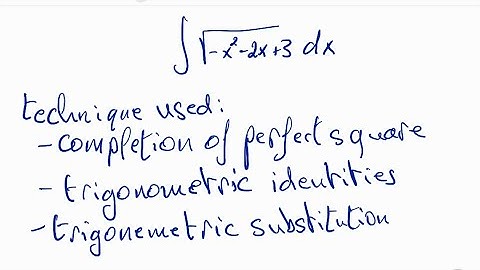 ∫√-x²-2x+3 dx
technique used:
- completion of perfect square
- trigonometric identities
- trigonemetric substitution